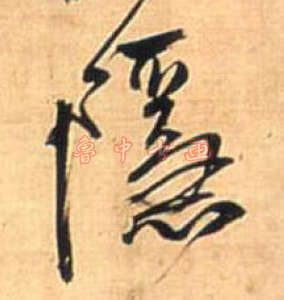 隱
鲁中书画